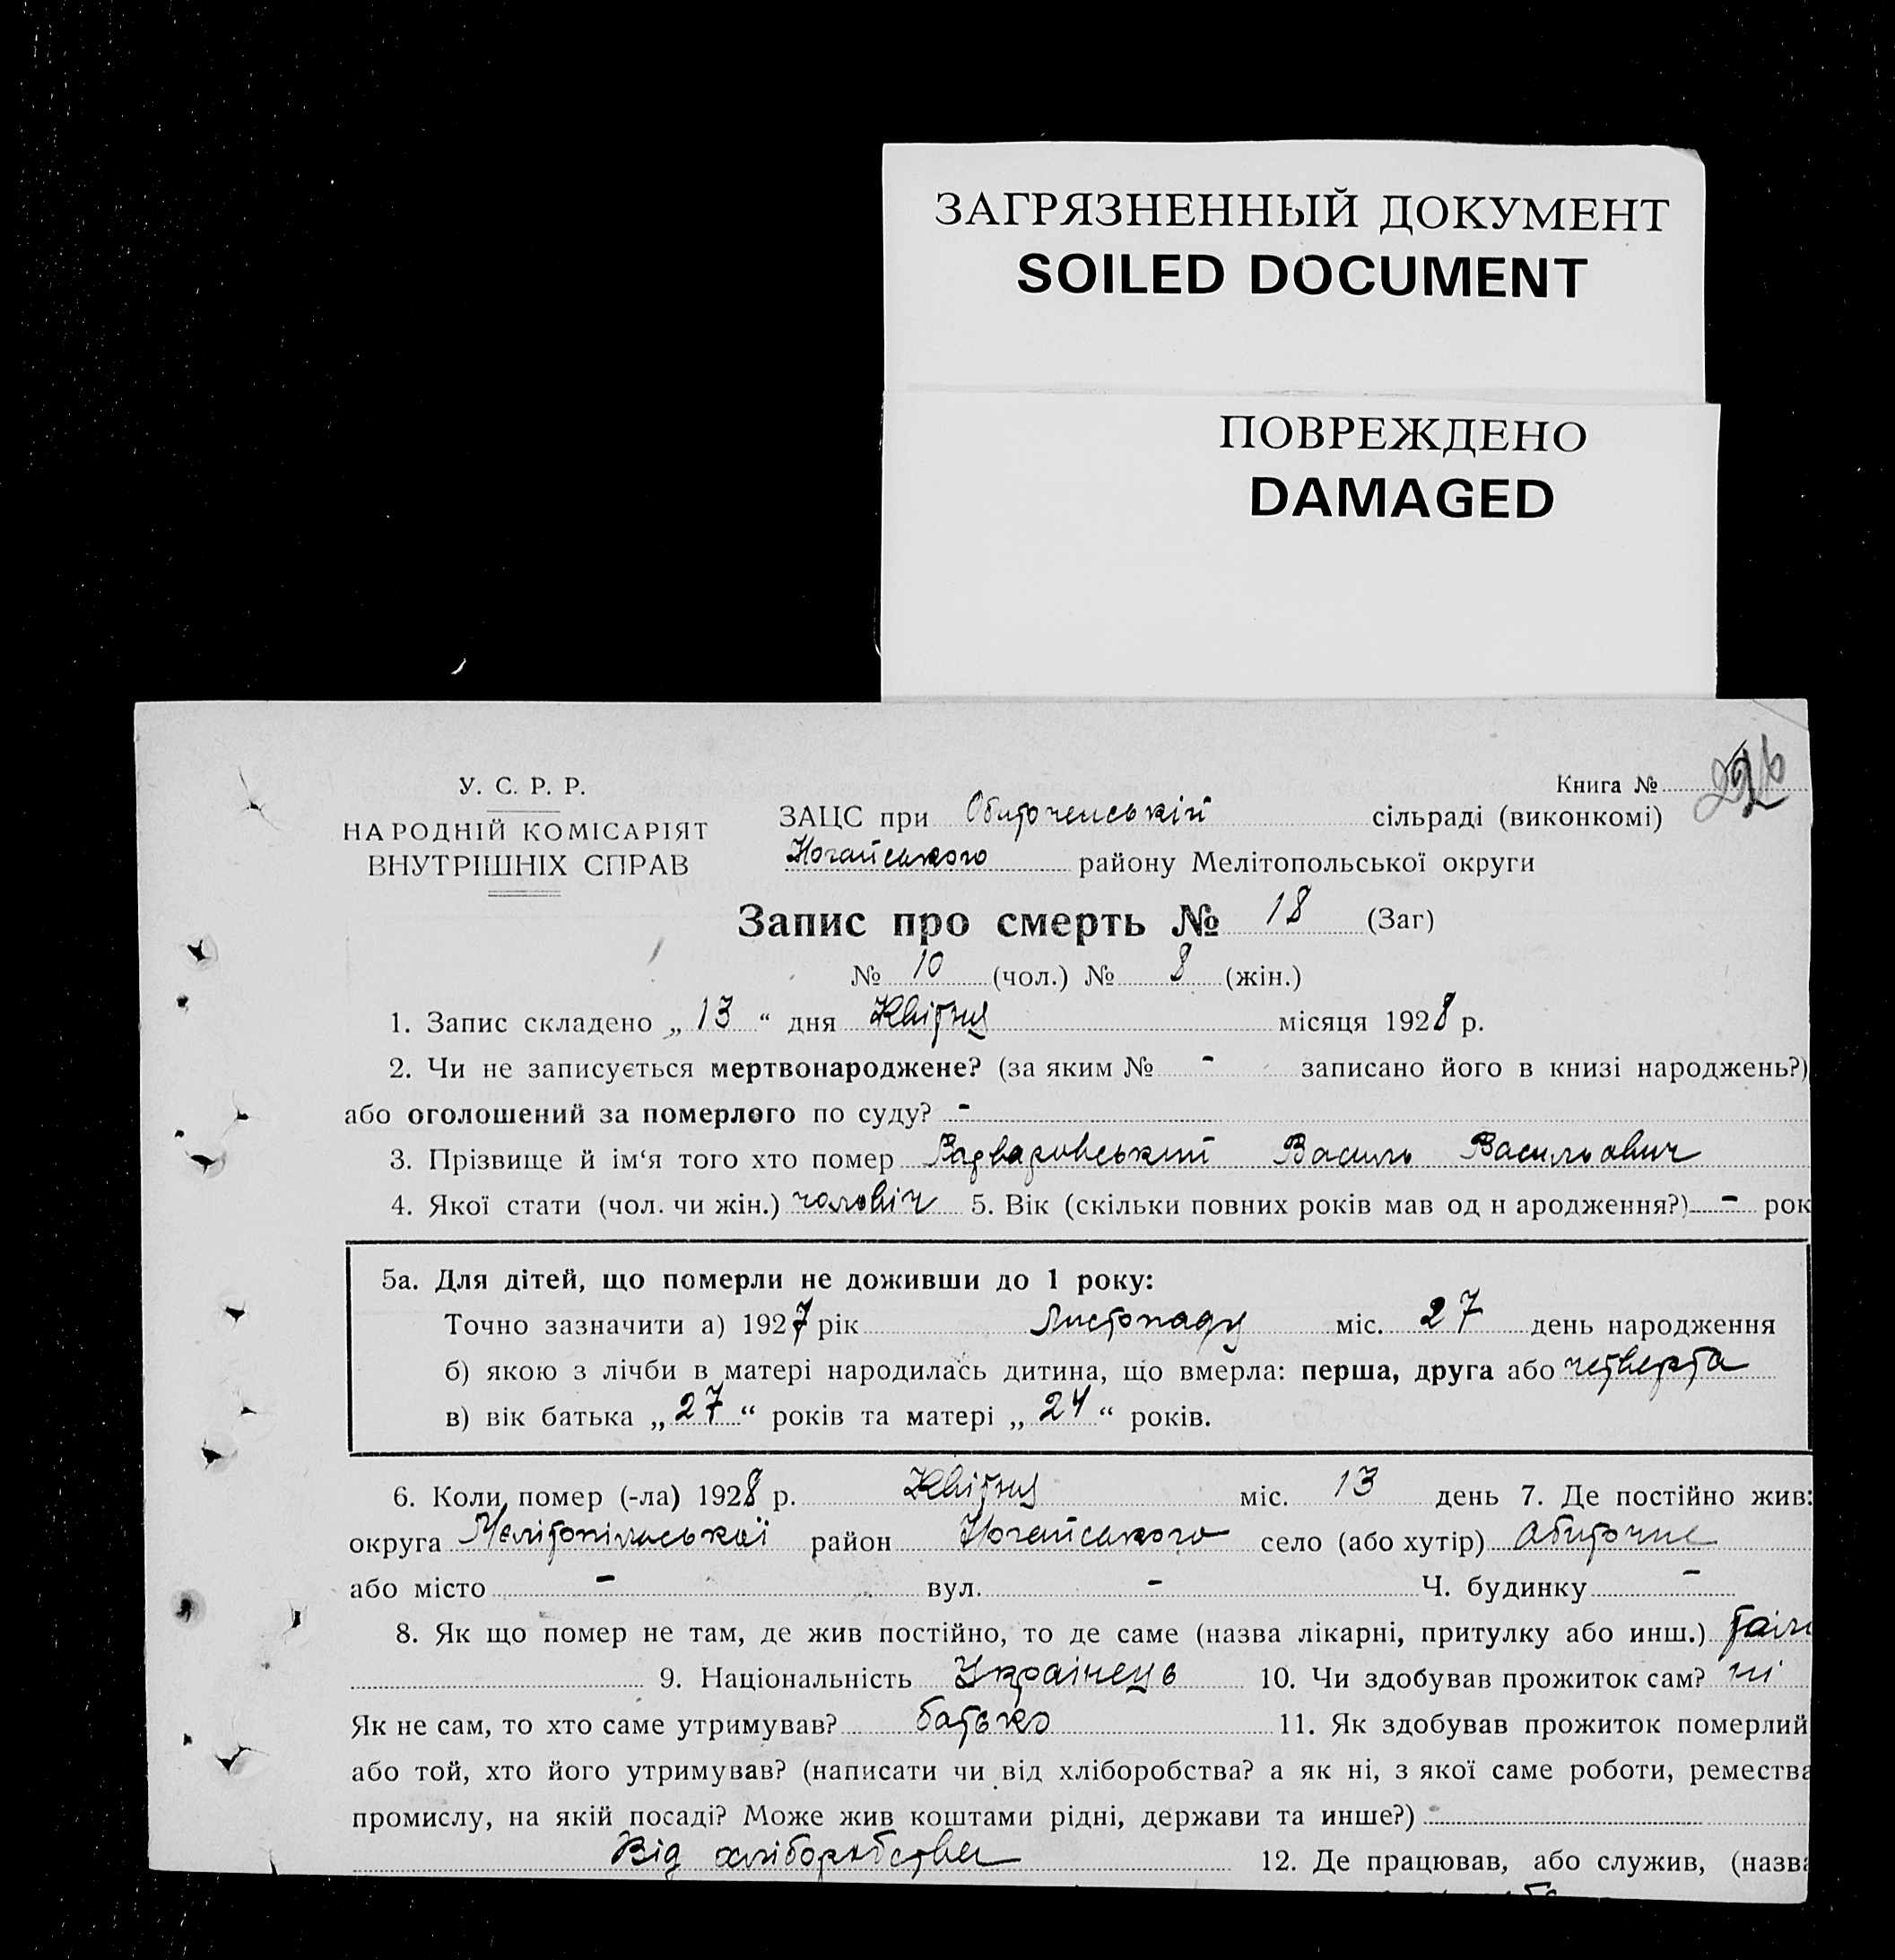 ЗАГРЯЗНЕННЫЙ ДОКУМЕНТ
SOILED DOCUMENT
ПОВРЕЖДЕНО
DAMAGED
У. С. Р. Р.
НАРОДНІЙ КОМІСАРІЯТ
ВНУТРІШНІХ СПРАВ
Книга №
ЗАЦС при Обиточенській сільраді (виконкомі)
Ногайського району Мелітопольської округи
Запис про смерть № 18 (Заг)
№ 10 (чол.) № 8 (жін.)
1. Запис складено „ 13 “ дня Квітня місяця 1928 р.
2. Чи не записується мертвонароджене? (за яким № - записано його в книзі народжень?)
або оголошений за померлого по суду? -
3. Прізвище й ім‘я того хто помер Варваровський Василь Васильович
4. Якої стати (чол. чи жін.) чоловіч 5. Вік (скільки повних років мав од н ародження?) - рок
5а. Для дітей, що померли не доживши до 1 року:
Точно зазначити а) 1927 рік Листопаду міс. 27 день народження
б) якою з лічби в матері народилась дитина, що вмерла: перша, друга або четверта
в) вік батька „ 27 “ років та матері „ 24 “ років.
6. Коли помер (-ла) 1928 р. Квітня міс. 13 день 7. Де постійно жив:
округа Мелітопільської район Ногайського село (або хутір) Обиточне
або місто - вул. - Ч. будинку -
8. Як що помер не там, де жив постійно, то де саме (назва лікарні, притулку або инш.)
9. Національність Українець 10. Чи здобував прожиток сам? ні
Як не сам, то хто саме утримував? батько 11. Як здобував прожиток померлий
або той, хто його утримував? (написати чи від хліборобства? а як ні, з якої саме роботи, ремества
промислу, на якій посаді? Може жив коштами рідні, держави та инше?)
Від хліборобства 12. Де працював, або служив, (назва